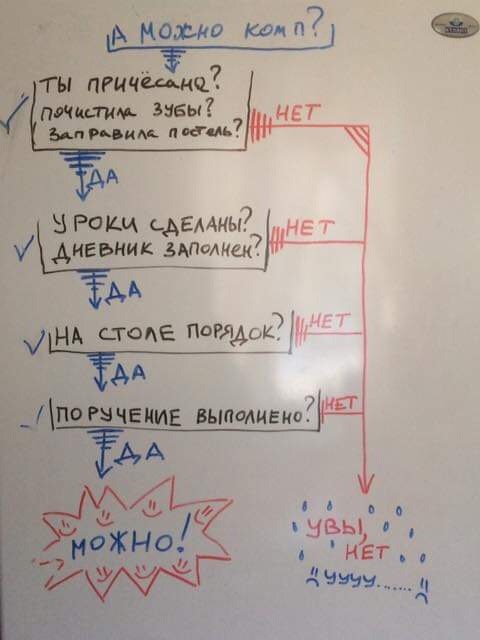 А МОЖНО КОМП?
ТЫ ПРИЧЁСАНА?
ПОЧИСТИЛА ЗУБЫ?
ЗАПРАВИЛА ПОСТЕЛЬ?
НЕТ
ДА
УРОКИ СДЕЛАНЫ?
ДНЕВНИК ЗАПОЛНЕН?
НЕТ
ДА
НА СТОЛЕ ПОРЯДОК?
НЕТ
ДА
ПОРУЧЕНИЕ ВЫПОЛНЕНО?
НЕТ
ДА
МОЖНО!
УВЫ,
НЕТ
УУУУ.......